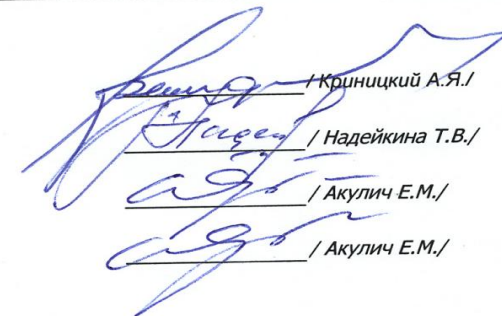 / Криницкий А.Я./
/ Надейкина Т.В./
/ Акулич Е.М./
/ Акулич Е.М./